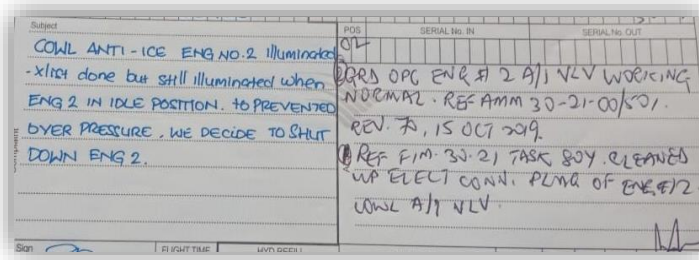 Subject
COWL ANTI-ICE ENG NO.2 Illuminated
-Xlist done but still illuminated when
ENG 2 IN IDLE POSITION. to PREVENTED
OVER PRESSURE. WE DECIDE TO SHUT
DOWN ENG 2.
Sign
FLIGHT TIME
HYD REFILL
POS
SERIAL No. IN
SERIAL No. OUT
02
GRD OPC ENG # 2 A/I VLV WORKING
NORMAL. REF AMM 30-21-00/501.
REV. 70, 15 OCT 2019.
REF FIM. 30-21 TASK 804. CLEANED
UP ELECT CONN. PLUG OF ENG #2
COWL A/I VLV.